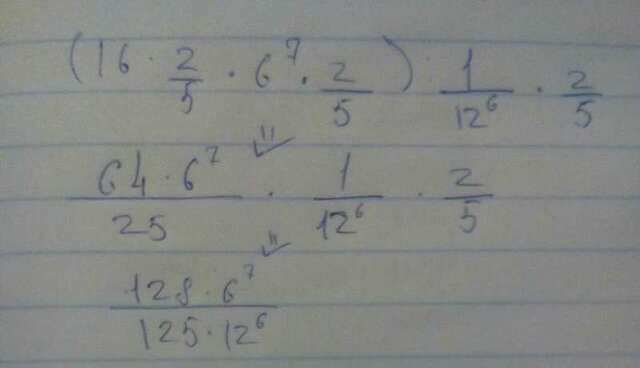 (16 · 2/5 · 6^7 · 2/5) · 1/12^6 · 2/5
=
64 · 6^7/25 · 1/12^6 · 2/5
=
128 · 6^7/125 · 12^6